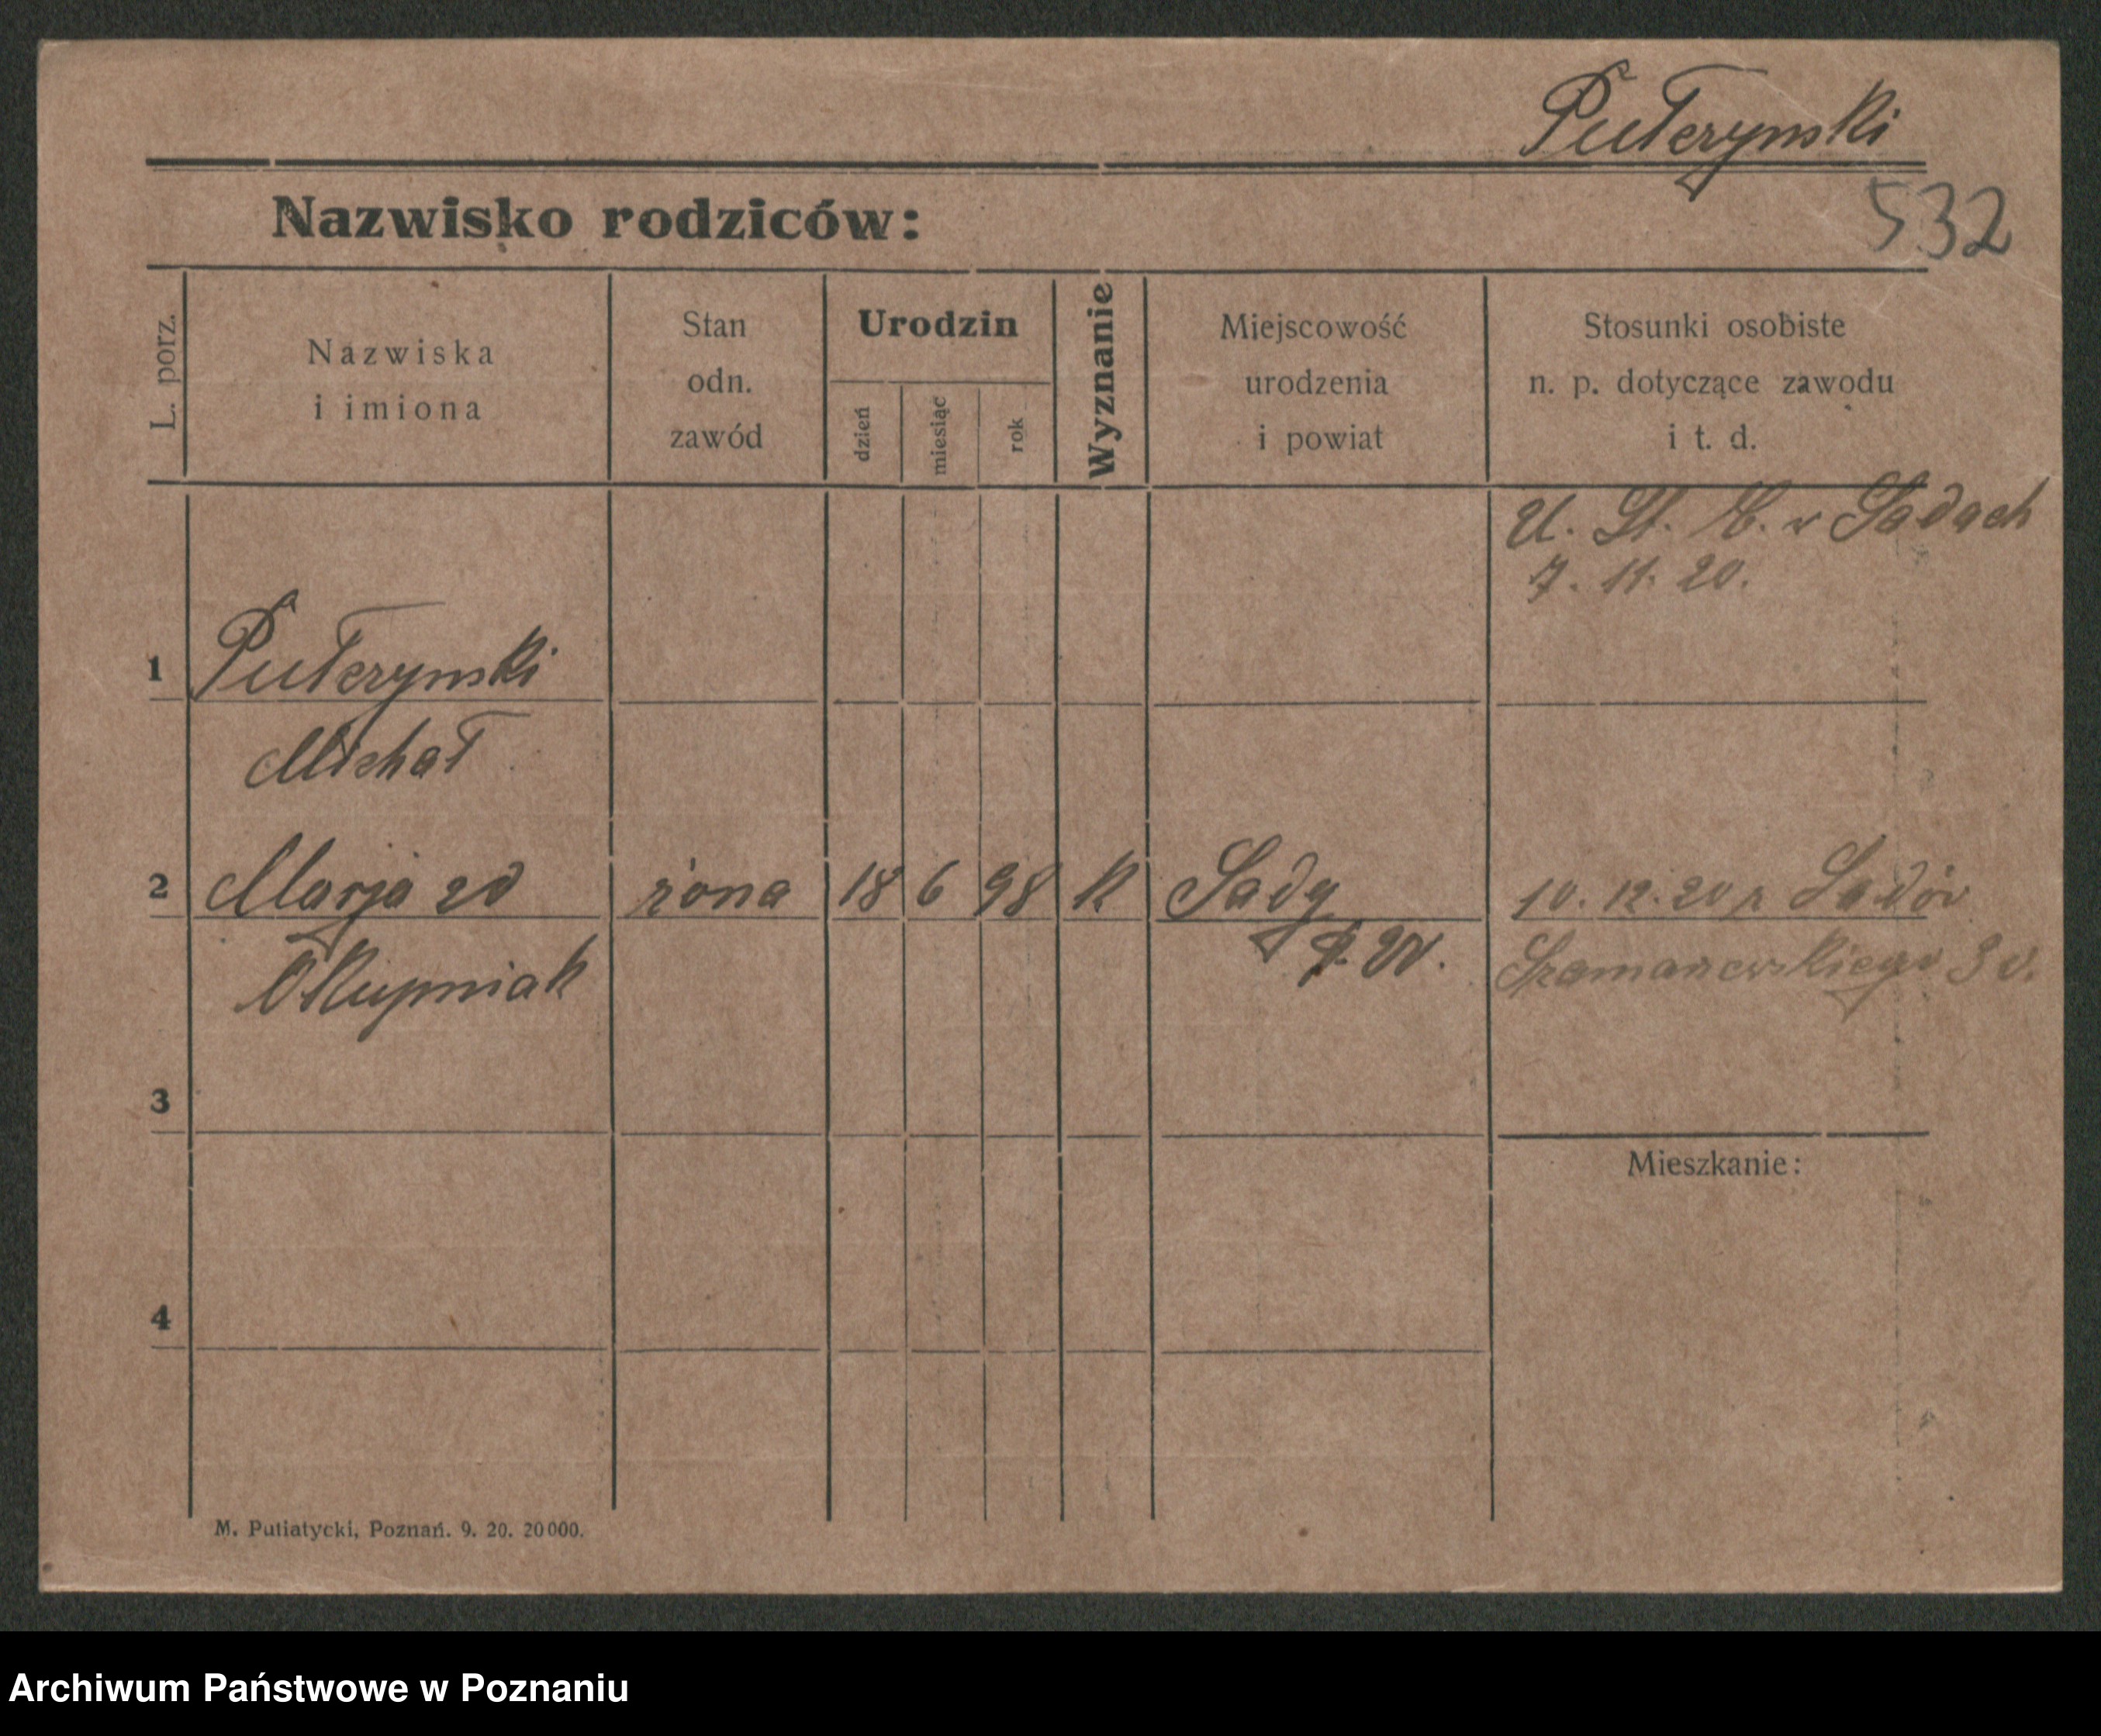 Pułczynski
532
Nazwisko rodziców:
L. porz.
Nazwiska
i imiona
Stan
odn.
zawód
Urodzin
dzień
miesiąc
rok
Wyznanie
Miejscowość
urodzenia
i powiat
Stosunki osobiste
n. p. dotyczące zawodu
i t. d.
U. St. C. w Sadach
7. 11. 20.
1 Pułczynski
Michał
2 Marja zd żona 18 6 98 k Sady 10. 12. 20 z Sadów
Skupniak p.
Szamarzewskiego 3
3
Mieszkanie:
4
M. Putiatycki, Poznań. 9. 20. 20000.
Archiwum Państwowe w Poznaniu